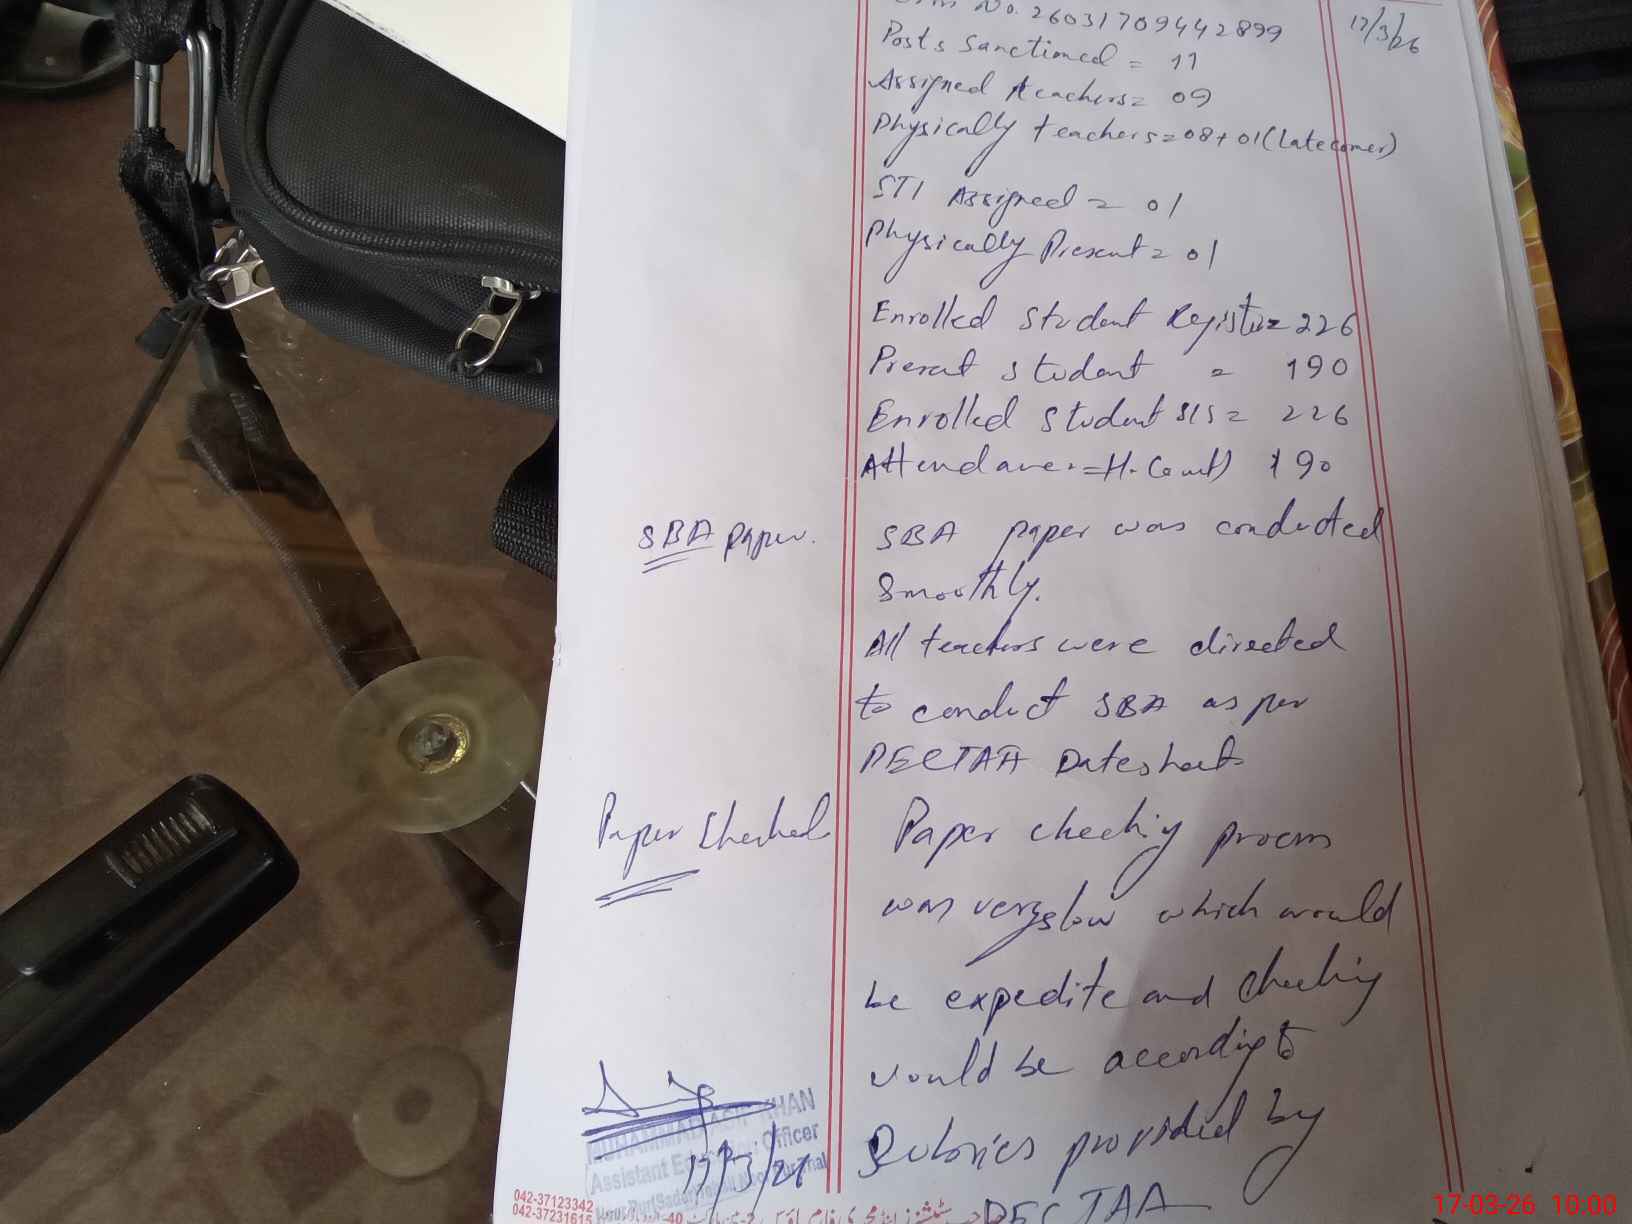 No. 26031709442899
17/3/26
Posts Sanctioned = 11
Assigned teachers= 09
Physically teachers=08+01(Latecomer)
STI Assigned = 01
Physically Present = 01
Enrolled Student Register= 226
Present student = 190
Enrolled student SIS = 226
Attendance.=H.Count) 190
SBA paper.
SBA paper was conducted
Smoothly.
All teachers were directed
to conduct SBA as per
PECTAA Datesheet
Paper Checked
Paper checking process
was very slow which would
be expedite and checking
would be according to
Rubrics provided by
PECTAA
MUHAMMAD ASIF KHAN
Assistant Education Officer
17/3/26
042-37123342
042-37231615
17-03-26 10:00